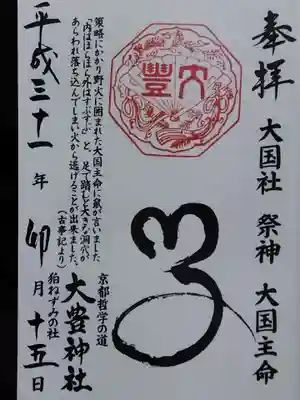 奉拝 大国社 祭神 大国主命
大豊
策略にかかり野火に囲まれた大国主命に鼠が言いました
「内はほらほら外はすぶすぶ」と、足で踏むと大きな洞穴が
あらわれ落ち込んでしまい火から逃げることが出来ました。
(古事記より)
京都哲学の道
大豊神社
狛ねずみの社
平成三十一年 卯月十五日